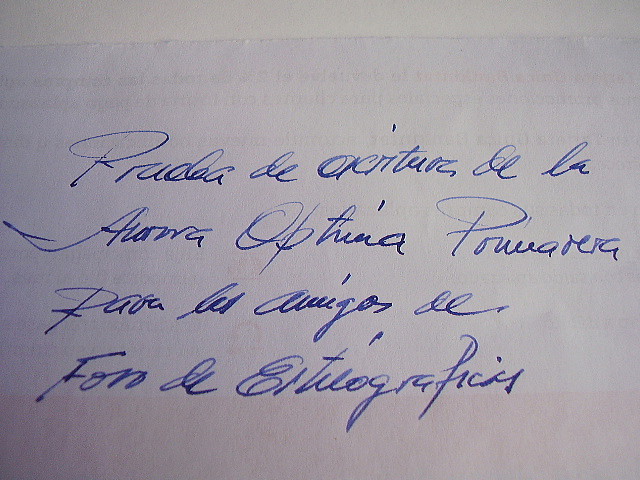 Prueba de escritura de la
Aurora Optima Primavera
para los amigos de
Foro de Estilográficas